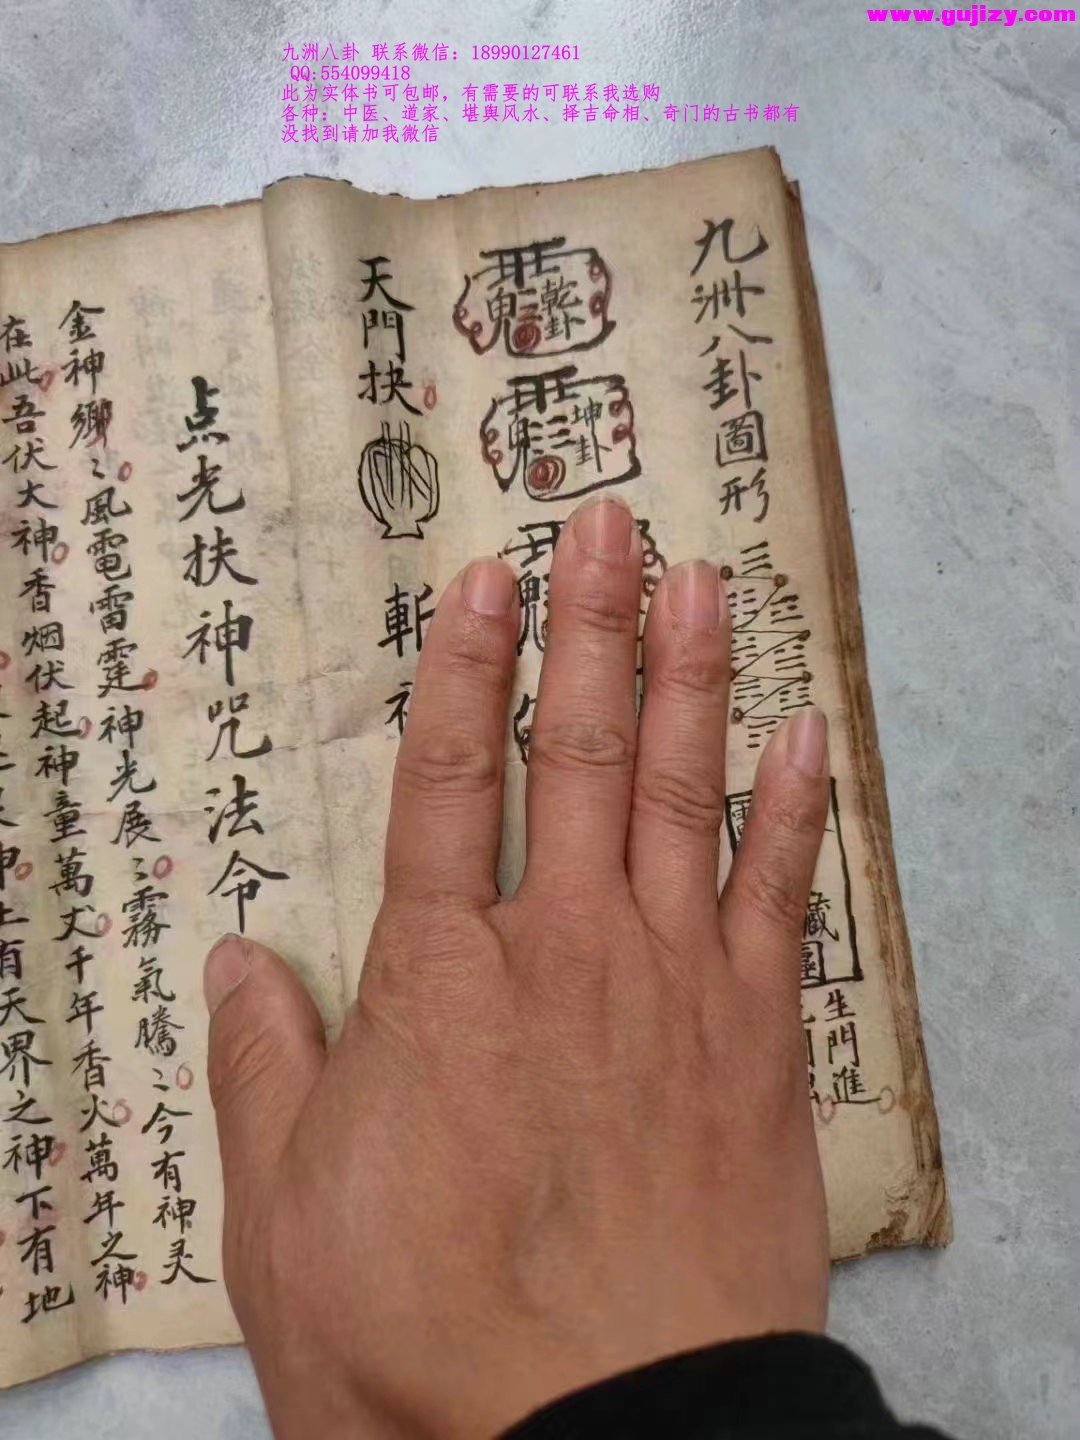 www.gujizy.com
九洲八卦 联系微信：18990127461
QQ:554099418
此为实体书可包邮，有需要的可联系我选购
各种：中医、道家、堪舆风水、择吉命相、奇门的古书都有
没找到请加我微信
九洲八卦圖形
藏
生門進
乾卦
坤卦
天門抉
斬
点光扶神咒法令
金神鄉〻風電雷霆神光展〻霧氣騰〻今有神灵
在此吾伏大神香烟伏起神童萬丈千年香火萬年之神
神上有天界之神下有地